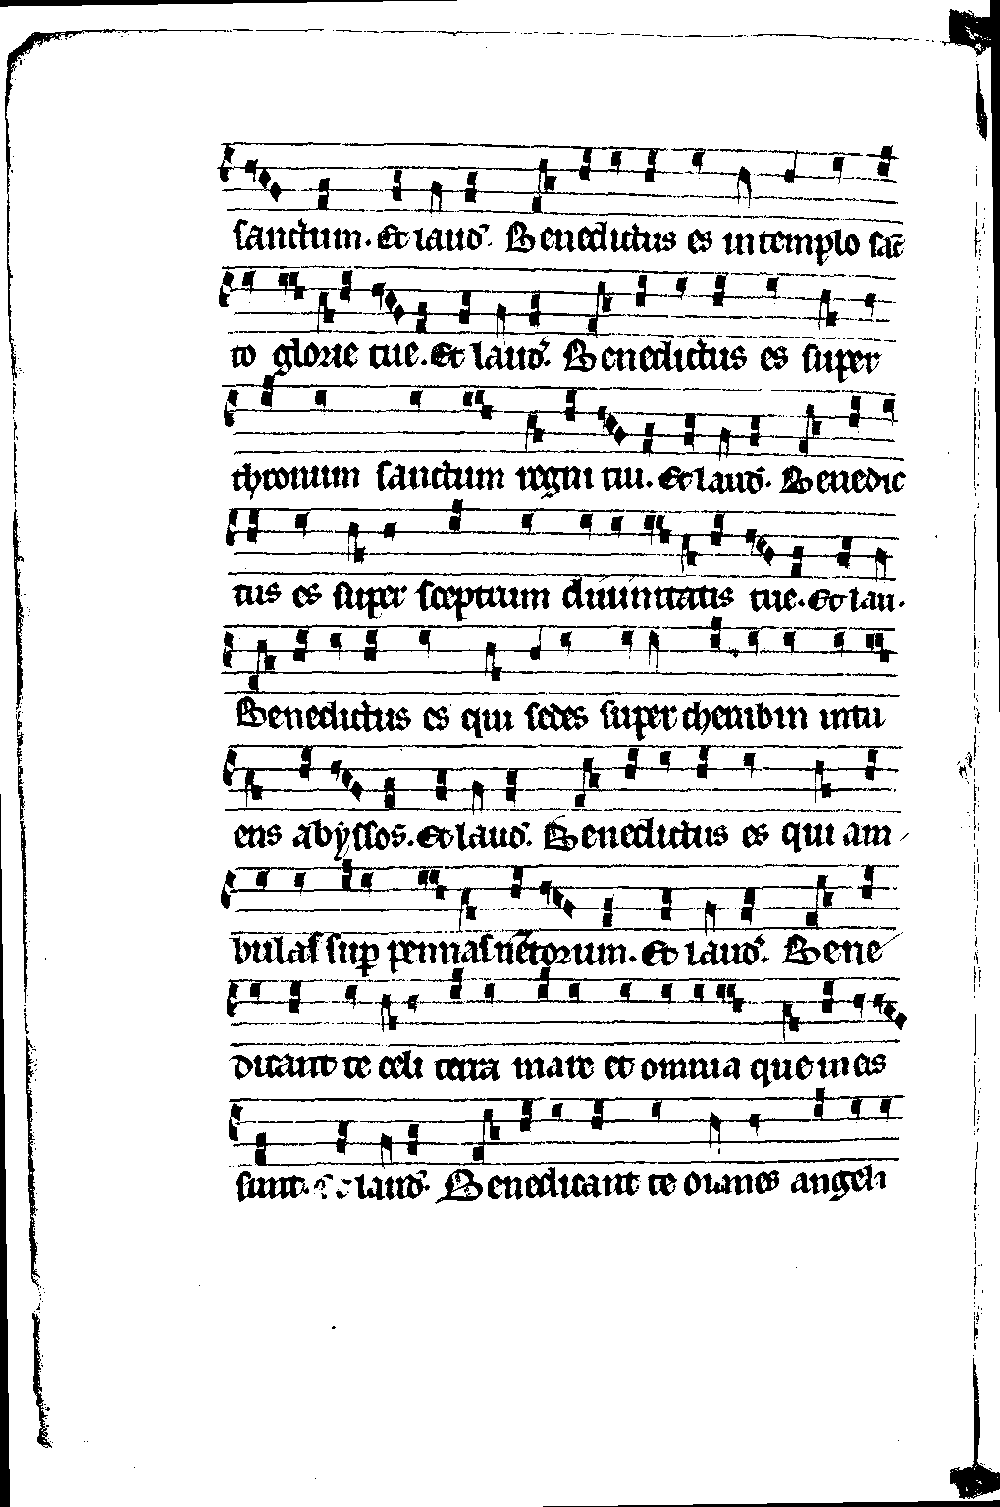 sanctum. Et laud̾. Benedictus es in templo sc̄
to glorie tue. Et laud̾. Benedictus es super
thronum sanctum regni tui. Et laud̾. Benedic
tus es super sceptrum diuinitatis tue. Et lau.
Benedictus es qui sedes super cherubin intu
ens abyssos. Et laud̾. Benedictus es qui am
bulas sup pennas uētorum. Et laud̾. Bene
dicant te celi terra mare et omnia que in eis
sunt. laud̾. Benedicant te omnes angeli